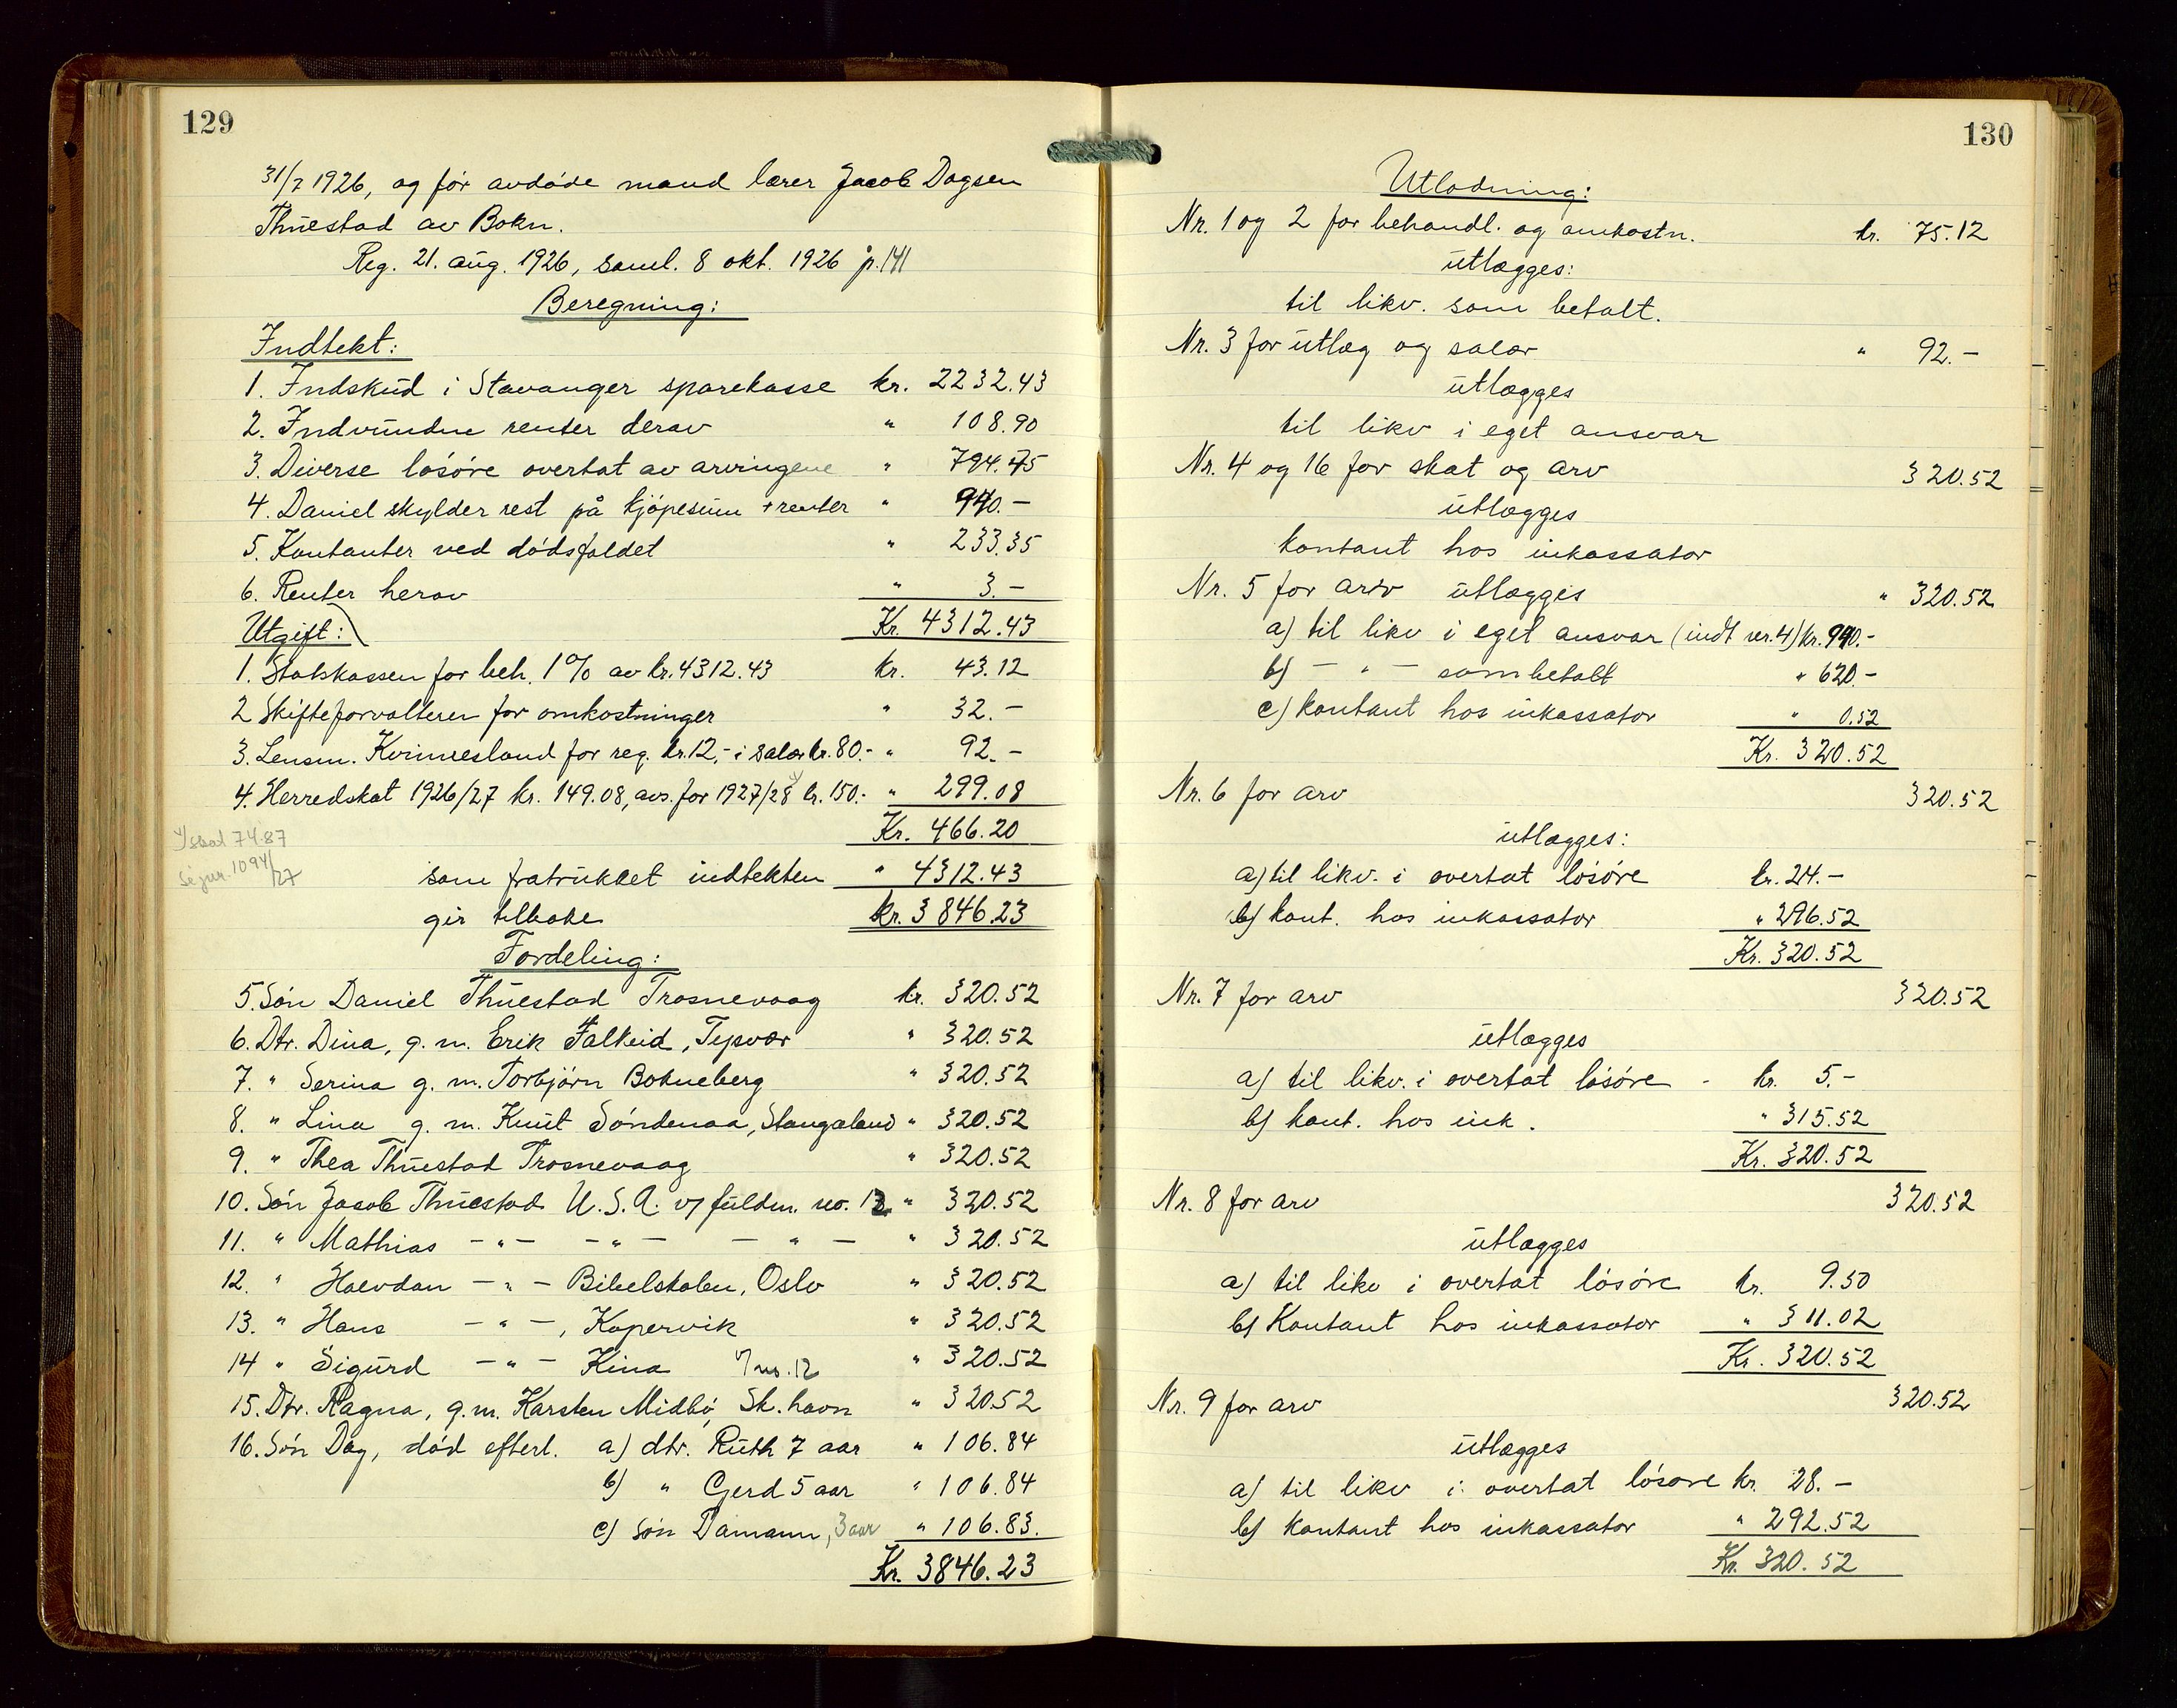 129
31/7 1926, og før avdøde mand lærer Jacob Dagsen
Thuestad av Bokn.
Reg. 21. aug. 1926, saml. 8 okt. 1926 p. 141
Beregning:
Indtekt:
1. Indskud i Stavanger sparekasse kr. 2232.43
2. Indvundne renter derav " 108.90
3. Diverse løsøre overtat av arvingene " 794.75
4. Daniel skylder rest på kjøpesum + renter " 940.–
5. Kontanter ved dødsfaldet " 233.35
6. Renter herav " 3.–
Kr. 4312.43
Utgift:
1. Statskassen for beh. 1% av kr. 4312.43 kr. 43.12
2 Skifteforvalteren for omkostninger " 32.–
3. Lensm. Kvinnesland for reg. kr. 12,- i salær kr. 80.- " 92.–
4. Herredskat 1926/27 kr. 149.08, avs. for 1927/28 kr. 150.- " 299.08
Kr. 466.20
74.87
1094/27
som fratrukket indtekten " 4312.43
gir tilbake kr. 3846.23
Fordeling:
5. Søn Daniel Thuestad Trosnevaag kr. 320.52
6. Dtr. Dina, g. m. Erik Falkeid, Tysvær " 320.52
7. " Serina g. m. Torbjørn Bokneberg " 320.52
8. " Lina g. m. Knut Søndenaa, Stangaland " 320.52
9. " Thea Thuestad Trosnevaag " 320.52
10. Søn Jacob Thuestad U. S. A. v/ fuldm. no. 12 " 320.52
11. " Mathias – " – – " – – " – " 320.52
12. " Halvdan – " – Bibelskolen, Oslo " 320.52
13. " Hans – " –, Kopervik " 320.52
14 " Sigurd – " – Kina v/ no. 12 " 320.52
15. Dtr. Ragna, g. m. Karsten Midbø, Sk. havn " 320.52
16. Søn Dag, død efterl. a) dtr. Ruth 7 aar " 106.84
b) " Gerd 5 aar " 106.84
c) søn Damann, 3 aar " 106.83.
Kr. 3846.23
130
Utlodning:
Nr. 1 og 2 for behandl. og omkostn. kr. 75.12
utlægges:
til likv. som betalt.
Nr. 3 for utlæg og salær " 92.–
utlægges
til likv i eget ansvar
Nr. 4 og 16 for skat og arv 320.52
utlægges
kontant hos inkassator
Nr. 5 for arv utlægges " 320.52
a) til likv i eget ansvar (indt nr. 4) kr. 940.-
b) – " – som betalt " 620.–
c) kontant hos inkassator " 0.52
Kr. 320.52
Nr. 6 for arv 320.52
utlægges:
a) til likv. i overtat løsøre kr. 24.–
b) kont. hos inkassator " 296.52
Kr. 320.52
Nr. 7 for arv 320.52
utlægges
a) til likv. i overtat løsøre - kr. 5.–
b) kont. hos ink. " 315.52
Kr. 320.52
Nr. 8 for arv 320.52
utlægges
a) til likv i overtat løsøre kr. 9.50
b) Kontant hos inkassator " 311.02
Kr. 320.52
Nr. 9 for arv 320.52
utlægges
a) til likv i overtat løsøre kr. 28.–
b) kontant hos inkassator " 292.52
Kr. 320.52